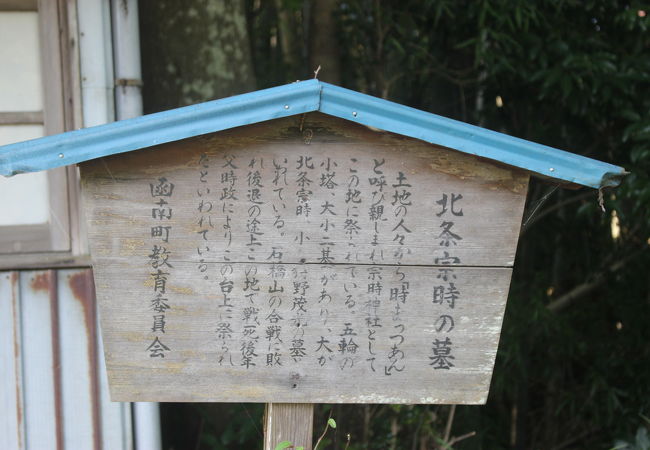 北条宗時の墓
土地の人々から「時まっつあん」
と呼び親しまれ宗時神社として
この地に祭られている。五輪の
小塔、大小二基があり、大が
北条宗時 小 狩野茂光の墓と
いわれている。石橋山の合戦に敗
れ後退の途上この地で戦死後年
父時政によりこの台上に祭られ
たといわれている。
函南町教育委員会